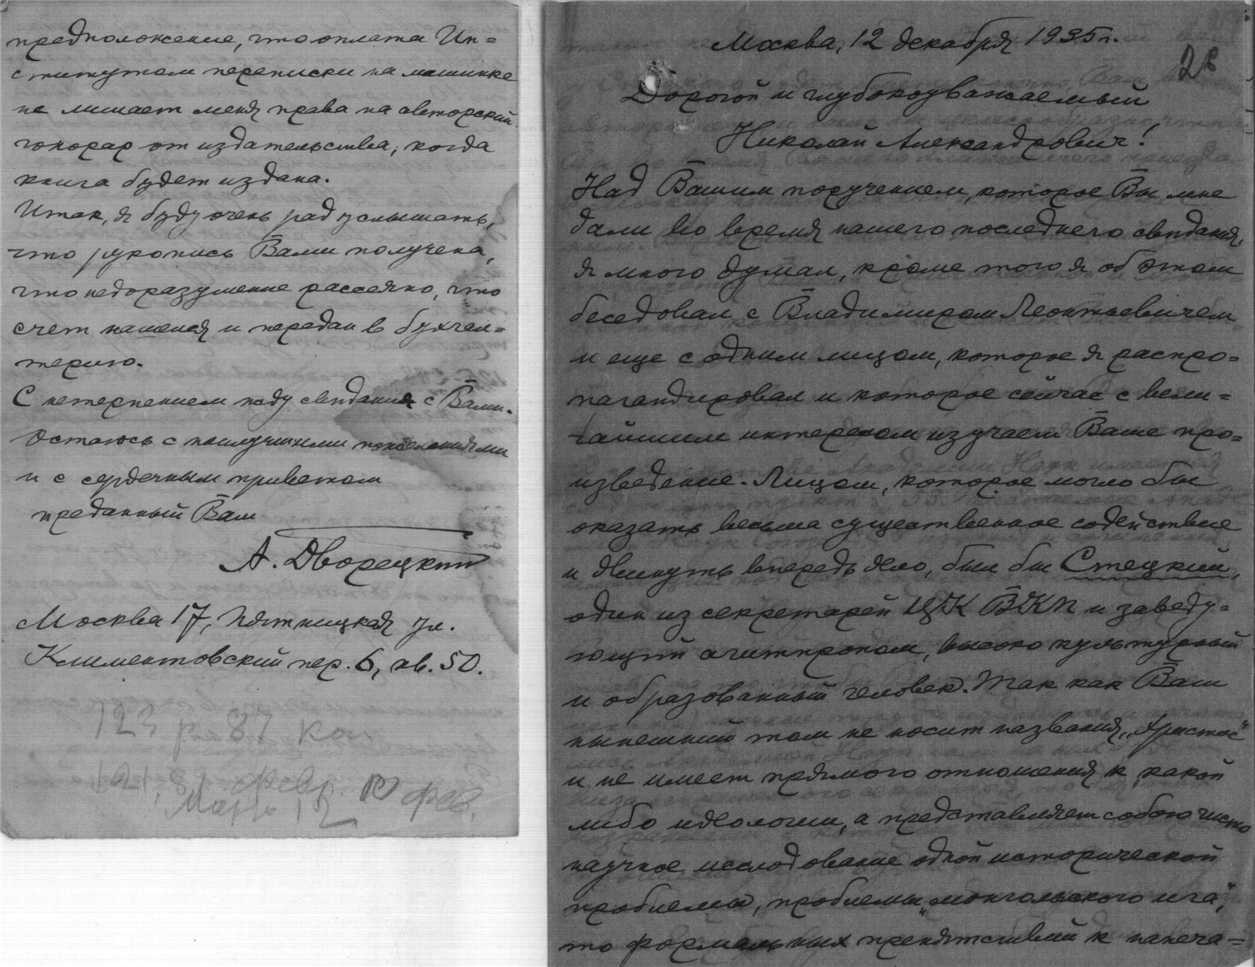 предположение, что оплата Ин-
ститутом переписки на машинке
не лишает меня права на авторский
гонорар от издательства, когда
книга будет издана.
Итак, я буду очень рад услышать,
что рукопись Вами получена,
что недоразумение рассеяно, что
счет нашелся и передан в бухгал-
терию.
С нетерпением жду свидания с Вами.
Остаюсь с наилучшими пожеланиями
и с сердечным приветом
преданный Вам
А. Дворецкий
Москва 17, Пятницкая ул.
Климентовский пер. 6, кв. 50.
123 р 87 коп
121,8 февр. 10 фев.
Март 12
Москва, 12 декабря 1935 г.
28
Дорогой и глубокоуважаемый
Николай Александрович!
Над Вашим поручением, которое Вы мне
дали во время нашего последнего свидания,
я много думал, кроме того я об этом
беседовал с Владимиром Леонтьевичем
и еще с одним лицом, которое я распро-
пагандировал и которое сейчас с вели-
чайшим интересом изучает Ваше про-
изведение. Лицом, которое могло бы
оказать весьма существенное содействие
и двинуть вперед дело, был бы Стецкий,
один из секретарей ЦК ВКП и заведу-
ющий агитпропом, высоко культурный
и образованный человек. Так как Ваш
нынешний том не носит названия „Христос"
и не имеет прямого отношения к какой
либо идеологии, а представляет собою чисто
научное исследование одной исторической
проблемы, проблемы „монгольского ига",
то формальных препятствий к напеча-